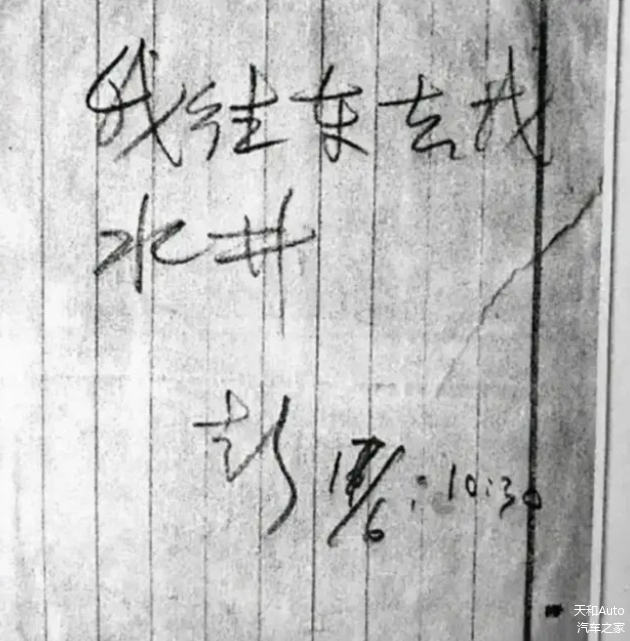 我往东去找
水井
彭 17/6:10:30
天和Auto
汽车之家